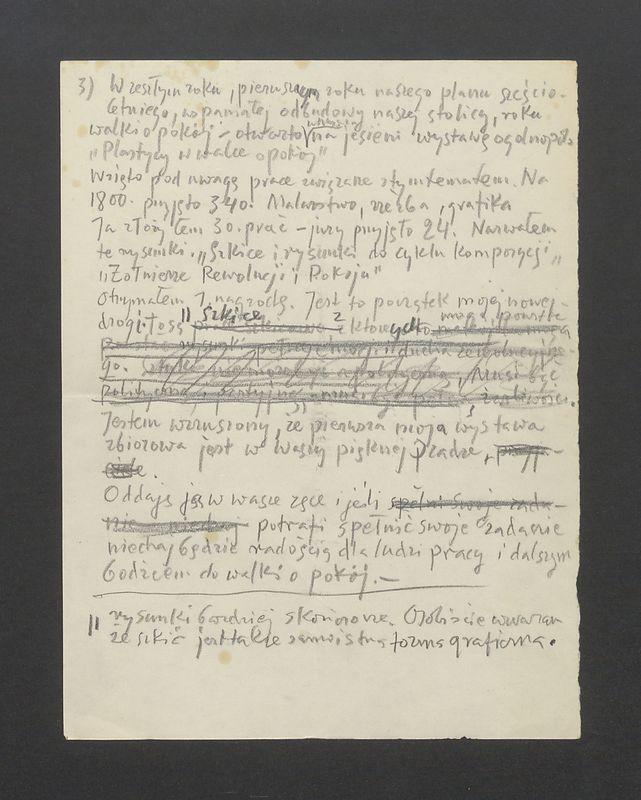 3) W zeszłym roku, pierwszym roku naszego planu sześcio-
letniego, wspaniałej odbudowy naszej stolicy, roku
walki o pokój – otwarto na jesieni wystawę ogólnopol.
„Plastycy w walce o pokój"
Wzięto pod uwagę prace związane z tym tematem. Na
1800. przyjęto 340. Malarstwo, rzeźba, grafika
Ja złożyłem 30. prac – jury przyjęło 24. Nazwałem
te rysunki. „Szkice i rysunki do cyklu kompozycji „
„Żołnierze Rewolucji i Pokoju"
Otrzymałem I nagrodę. Jest to początek mojej nowej-
drogi. To są szkice z których mogą powstać
rysunki pełne i ducha rewolucyjne-
go. Sztuka nie może być apolityczna, musi być
polityczna i partyjna
Jestem wzruszony, że pierwsza moja wystawa
zbiorowa jest w Waszej pięknej Pradze,
Oddaję ją w wasze ręce i jeśli spełni swoje zada-
nie niechaj potrafi spełnić swoje zadanie
niechaj będzie radością dla ludzi pracy i dalszym
bodźcem do walki o pokój. –
II rysunki bardziej skończone. Osobiście uważam
że szkic jest także samoistną formą graficzną.